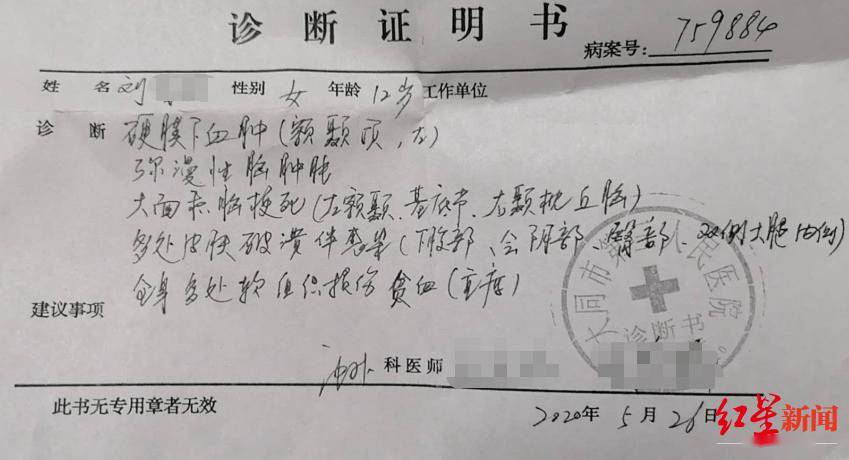 诊断证明书
病案号: 759884
姓名 刘 性别 女 年龄 12岁 工作单位
诊断 硬膜下血肿(额颞顶,左)
弥漫性脑肿胀
大面积脑梗死(左额颞、基底节、右颞枕丘脑)
多处皮肤破溃伴感染(下腹部、会阴部、臀部、双侧大腿内侧)
全身多处软组织损伤 贫血(重度)
建议事项
大同市 人民医院
诊断书
科医师
此书无专用章者无效
2020年5月26日
红星新闻